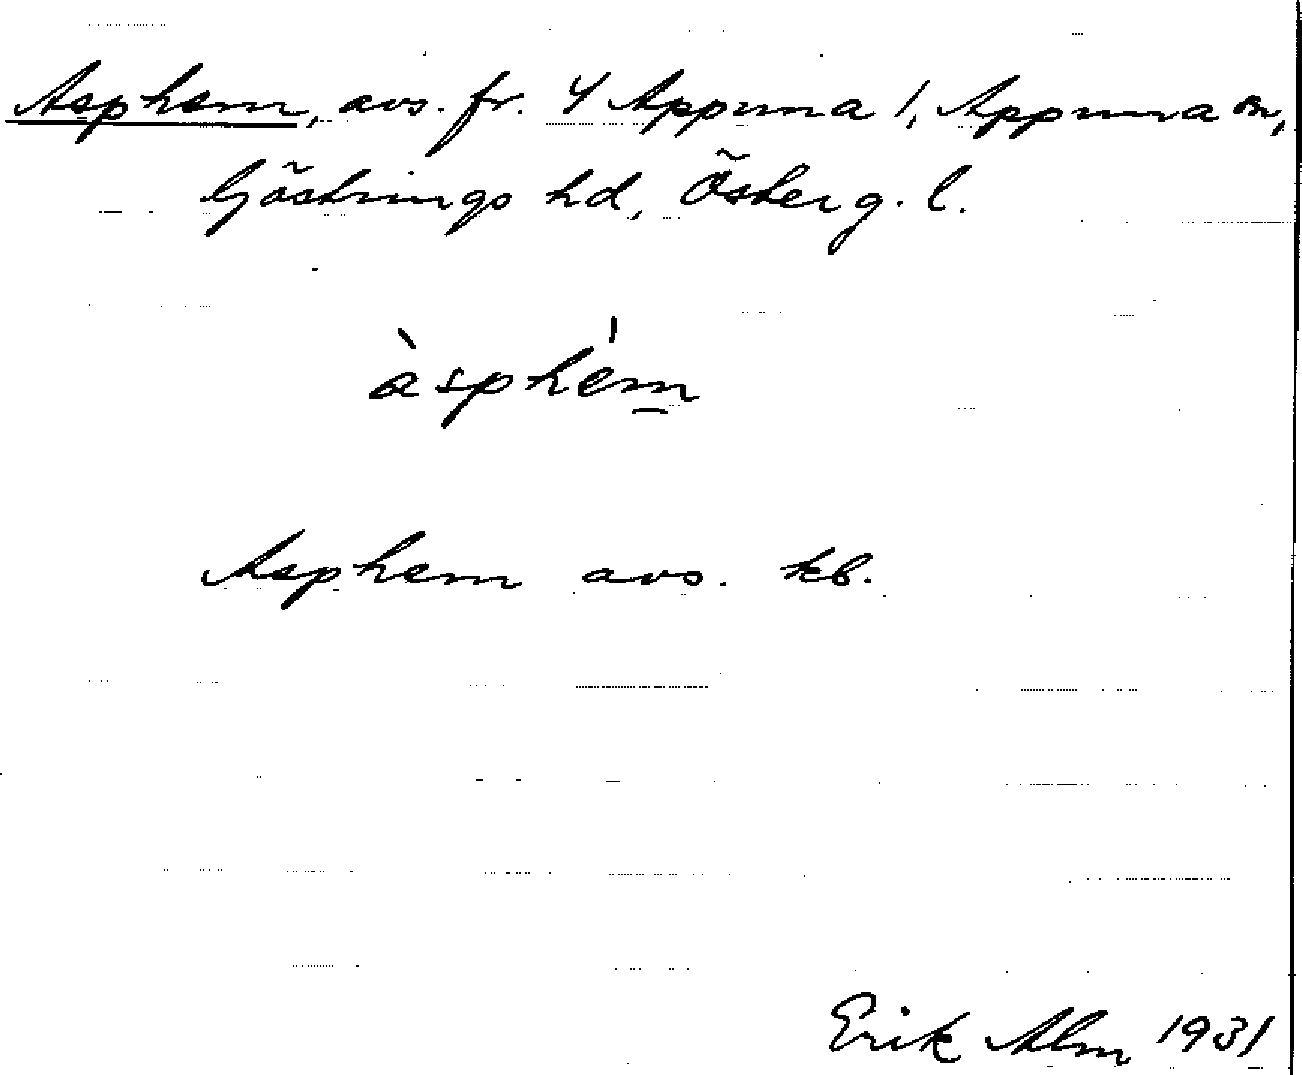 Asphem, avs. fr. 4 Appuna 1, Appuna sn,
Göstrings hd, Österg. l.
àsphém
Asphem avs. kb.
Erik Alm 1931